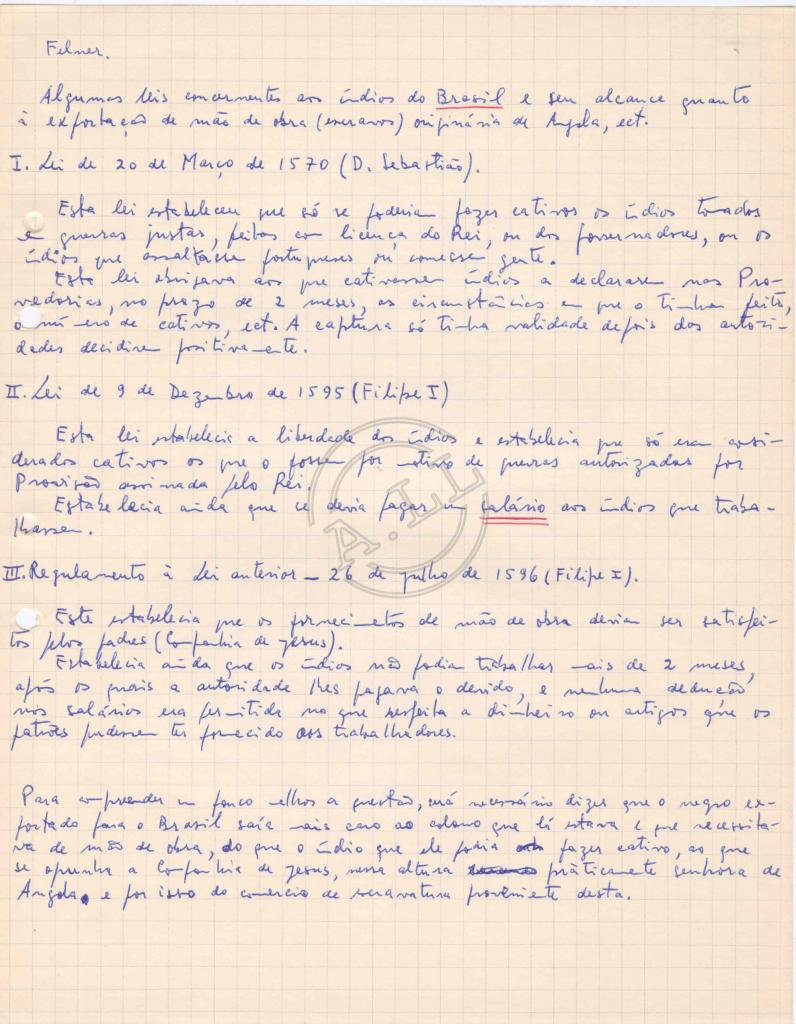 Felner.
Algumas leis concernentes aos índios do Brasil e seu alcance quanto
à exportação de mão de obra (escravos) originária de Angola, ect.
I. Lei de 20 de Março de 1570 (D. Sebastião).
Esta lei estabeleceu que só se poderiam fazer cativos os índios tomados
em guerras justas, feitas com licença do Rei, ou dos governadores, ou os
índios que assaltassem portugueses ou comessem gente.
Esta lei obrigava aos que cativassem índios a declararem nas Pro-
vedorias, no prazo de 2 meses, as circunstâncias em que o tinham feito,
o número de cativos, ect. A captura só tinha validade depois das autori-
dades decidirem positivamente.
II. Lei de 9 de Dezembro de 1595 (Filipe I)
Esta lei estabelecia a liberdade dos índios e estabelecia que só eram consi-
derados cativos os que o fossem por motivo de guerras autorizadas por
Provisão assinada pelo Rei.
Estabelecia ainda que se devia pagar um salário aos índios que traba-
lhassem.
A.LL
III. Regulamento à Lei anterior — 26 de Julho de 1596 (Filipe I).
Este estabelecia que os fornecimentos de mão de obra deviam ser satisfei-
tos pelos padres (Companhia de Jesus).
Estabelecia ainda que os índios não podiam trabalhar mais de 2 meses,
após os quais a autoridade lhes pagava o devido, e nenhuma dedução
nos salários era permitida no que respeita a dinheiro ou artigos que os
patrões pudessem ter fornecido aos trabalhadores.
Para compreender um pouco melhor a questão, será necessário dizer que o negro ex-
portado para o Brasil saía mais caro ao colono que lá estava e que necessita-
va de mão de obra, do que o índio que ele podia fazer cativo, ao que
se opunha a Companhia de Jesus, nessa altura pràticamente senhora de
Angola, e por isso do comércio de escravatura proveniente desta.